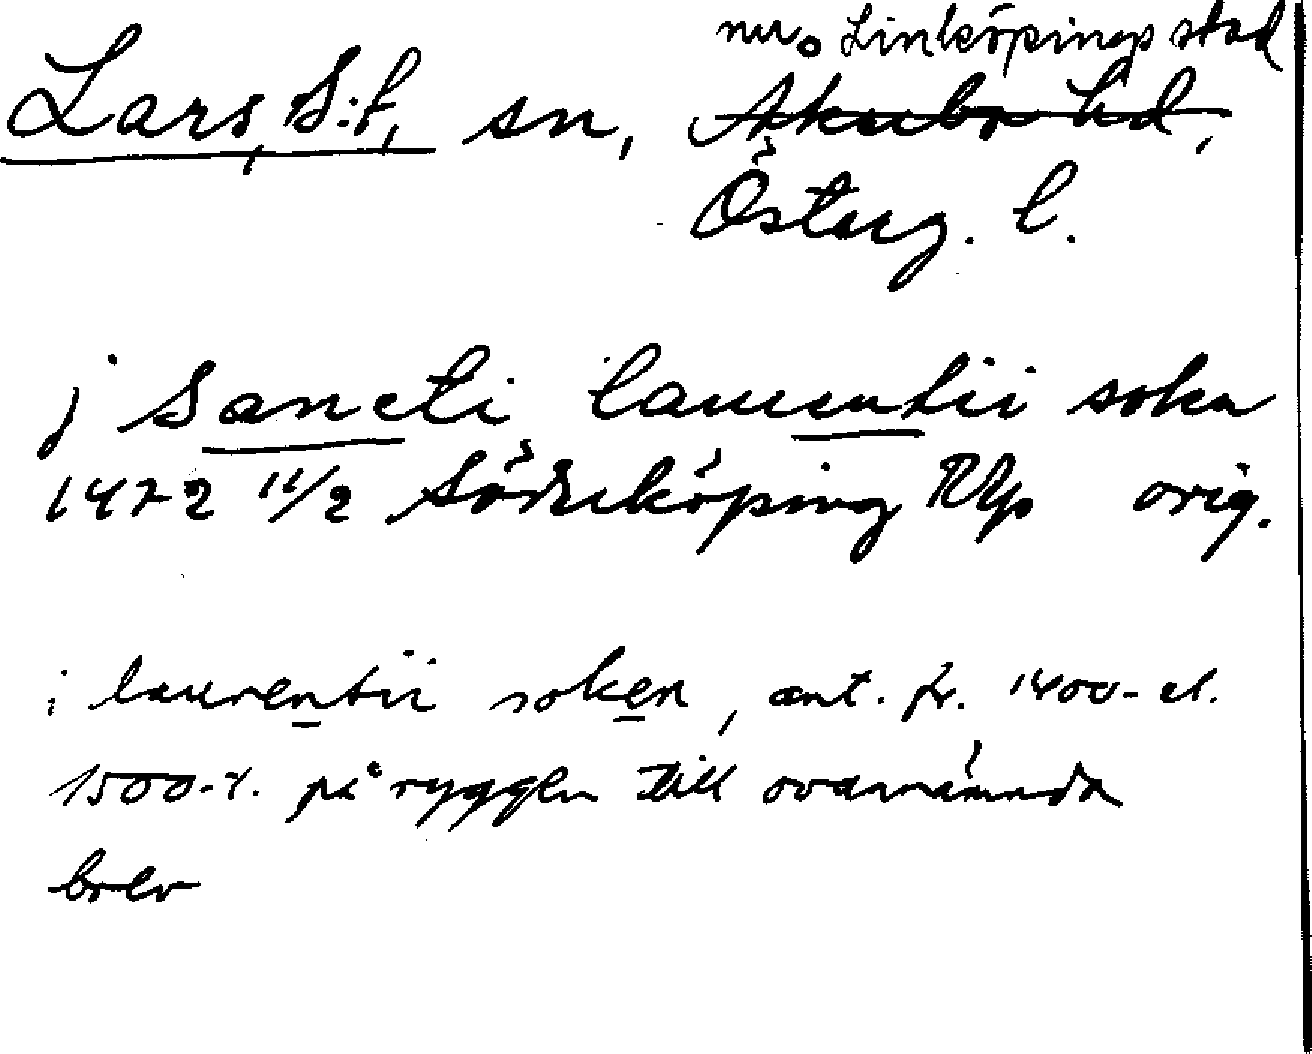 nu. Linköpings stad
Lars, S:t, sn, Åkerbo hd,
Österg. l.
j Sancti laurentii sokn
1472 11/2 Söderköping RAp orig.
i laurentii soken, ant. fr. 1400- el.
1500-t. på ryggen till ovannämnda
brev